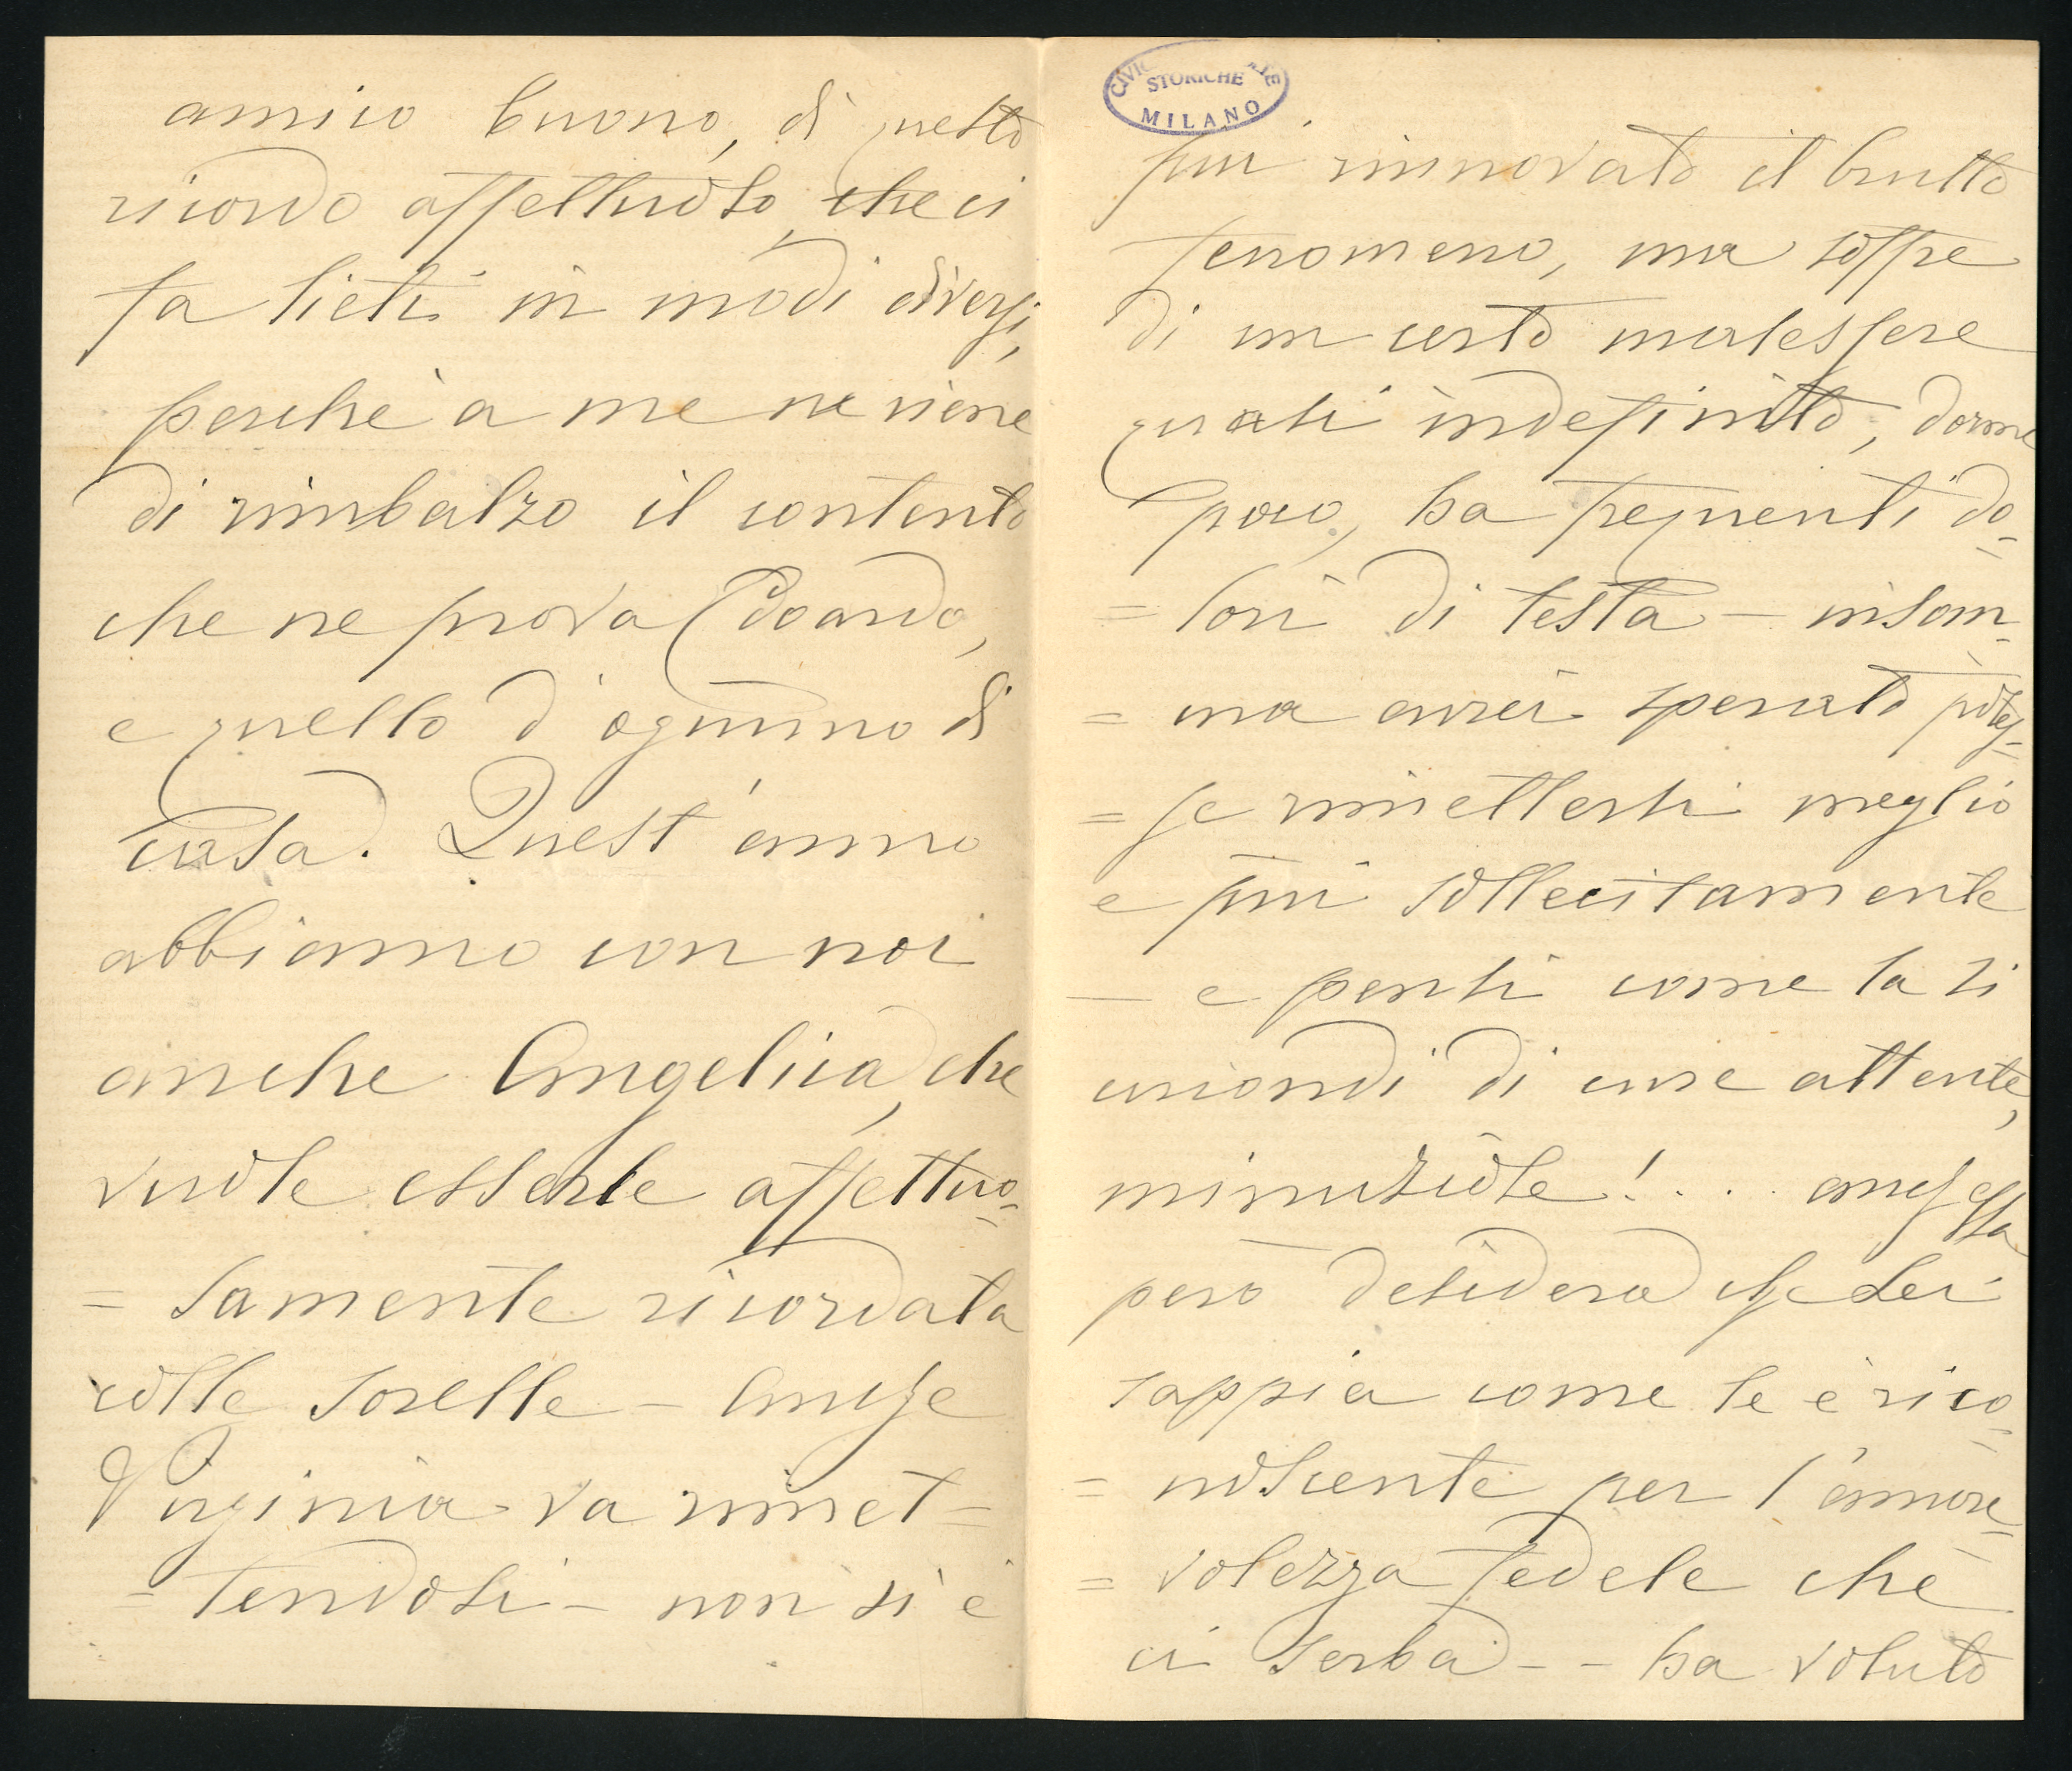 amico buono, di questo
ricordo affettuoso, che ci
fa lieti in modi diversi,
perchè a me ne viene
di rimbalzo il contento
che ne prova Edoardo,
e quello d'ognuno di
casa. Quest'anno
abbiamo con noi
anche Angelica, che
vuole esserle affettuo-
= samente ricordata
colle sorelle - Anche
Virginia va rimet=
= tendosi - non si è
STORICHE
MILANO
più rinnovato il brutto
fenomeno, ma soffre
di un certo malessere
quasi indefinito, dorme
poco, ha frequenti do-
= lori di testa - insom-
= ma avrei sperato potes-
= se rimettersi meglio
e più sollecitamente
- e pensi come la si
circondi di cure attente,
minuziose! . . . anch'essa
però desidera che Lei
sappia come le è rico-
= noscente per l'amore-
= volezza fedele che
ci serba - - ha voluto